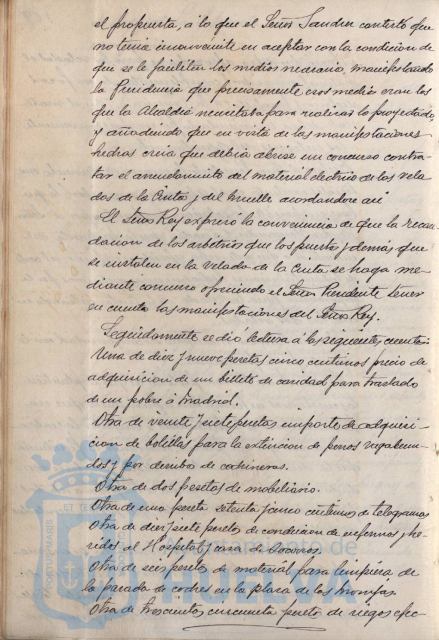 el propuesto, á lo que el Señor Sander contestó que
no tenia inconveniente en aceptar con la condicion de
que se le faciliten los medios necesarios, manifestando
la Presidencia que precisamente esos medios eran los
que la Alcaldia necesitaba para realizar lo proyectado
y añadiendo que en vista de las manifestaciones
hechas creia que debia abrirse un concurso contra-
tar el arrendamiento del material electrico de las vela-
das de la Cinta y del Muelle acordandose asi
El Señor Rey expresó la conveniencia de que la recau-
dacion de los arbitrios que los puestos y demás que
se instalen en la velada de la Cinta se haga me-
diante concurso ofreciendo el Señor Presidente tener
en cuenta las manifestaciones del Señor Rey.
Seguidamente se dió lectura á las siguientes cuentas:
Una de diez y nueve pesetas cinco centimos precio de
adquisicion de un billete de caridad para traslado
de un pobre á Madrid.
Otra de veinte y siete pesetas importe de adquisi-
cion de bolillas para la extincion de perros vagabun-
dos y por derribo de
Otra de dos pesetas de mobiliario.
Otra de una peseta setenta y cinco centimos de telegramas
Otra de diez y siete pesetas de conduccion de enfermos y he-
ridos al Hospital y casa de Socorro.
Otra de seis pesetas de material para limpieza de
la parada de coches en la plaza de las Monjas
Otra de trescientas cincuenta pesetas de riegos efec-
Ayuntamiento de
HUELVA